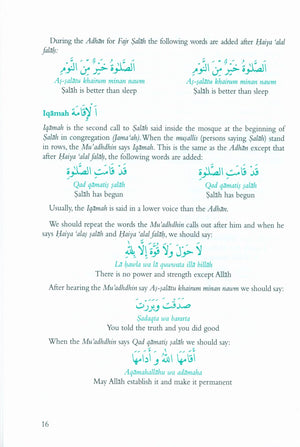 During the Adhān for Fajr Ṣalāh the following words are added after Ḥaiya 'alal
falāḥ:
اَلصَّلٰوةُ خَيْرٌ مِّنَ النَّوْمِ اَلصَّلٰوةُ خَيْرٌ مِّنَ النَّوْمِ
Aṣ-ṣalātu khairum minan nawm Aṣ-ṣalātu khairum minan nawm
Ṣalāh is better than sleep Ṣalāh is better than sleep
Iqāmah اَلْإِقَامَة
Iqāmah is the second call to Ṣalāh said inside the mosque at the beginning of
Ṣalāh in congregation (Jama'ah). When the muṣallis (persons saying Ṣalāh) stand
in rows, the Mu'adhdhin says Iqāmah. This is the same as the Adhān except that
after Ḥaiya 'alal falāḥ, the following words are added:
قَدْ قَامَتِ الصَّلٰوةُ قَدْ قَامَتِ الصَّلٰوةُ
Qad qāmatiṣ ṣalāh Qad qāmatiṣ ṣalāh
Ṣalāh has begun Ṣalāh has begun
Usually, the Iqāmah is said in a lower voice than the Adhān.
We should repeat the words the Mu'adhdhin calls out after him and when he
says Ḥaiya 'alaṣ ṣalāh and Ḥaiya 'alal falāḥ, we should say:
لَا حَوْلَ وَلَا قُوَّةَ إِلَّا بِاللّٰهِ
Lā ḥawla wa lā quwwata illā billāh
There is no power and strength except Allāh
After hearing the Mu'adhdhin say Aṣ-ṣalātu khairum minan nawm we should say:
صَدَقْتَ وَبَرَرْتَ
Ṣadaqta wa bararta
You told the truth and you did good
When the Mu'adhdhin says Qad qāmatiṣ ṣalāh we should say:
أَقَامَهَا اللّٰهُ وَ أَدَامَهَا
Aqāmahallāhu wa adāmaha
May Allāh establish it and make it permanent
16